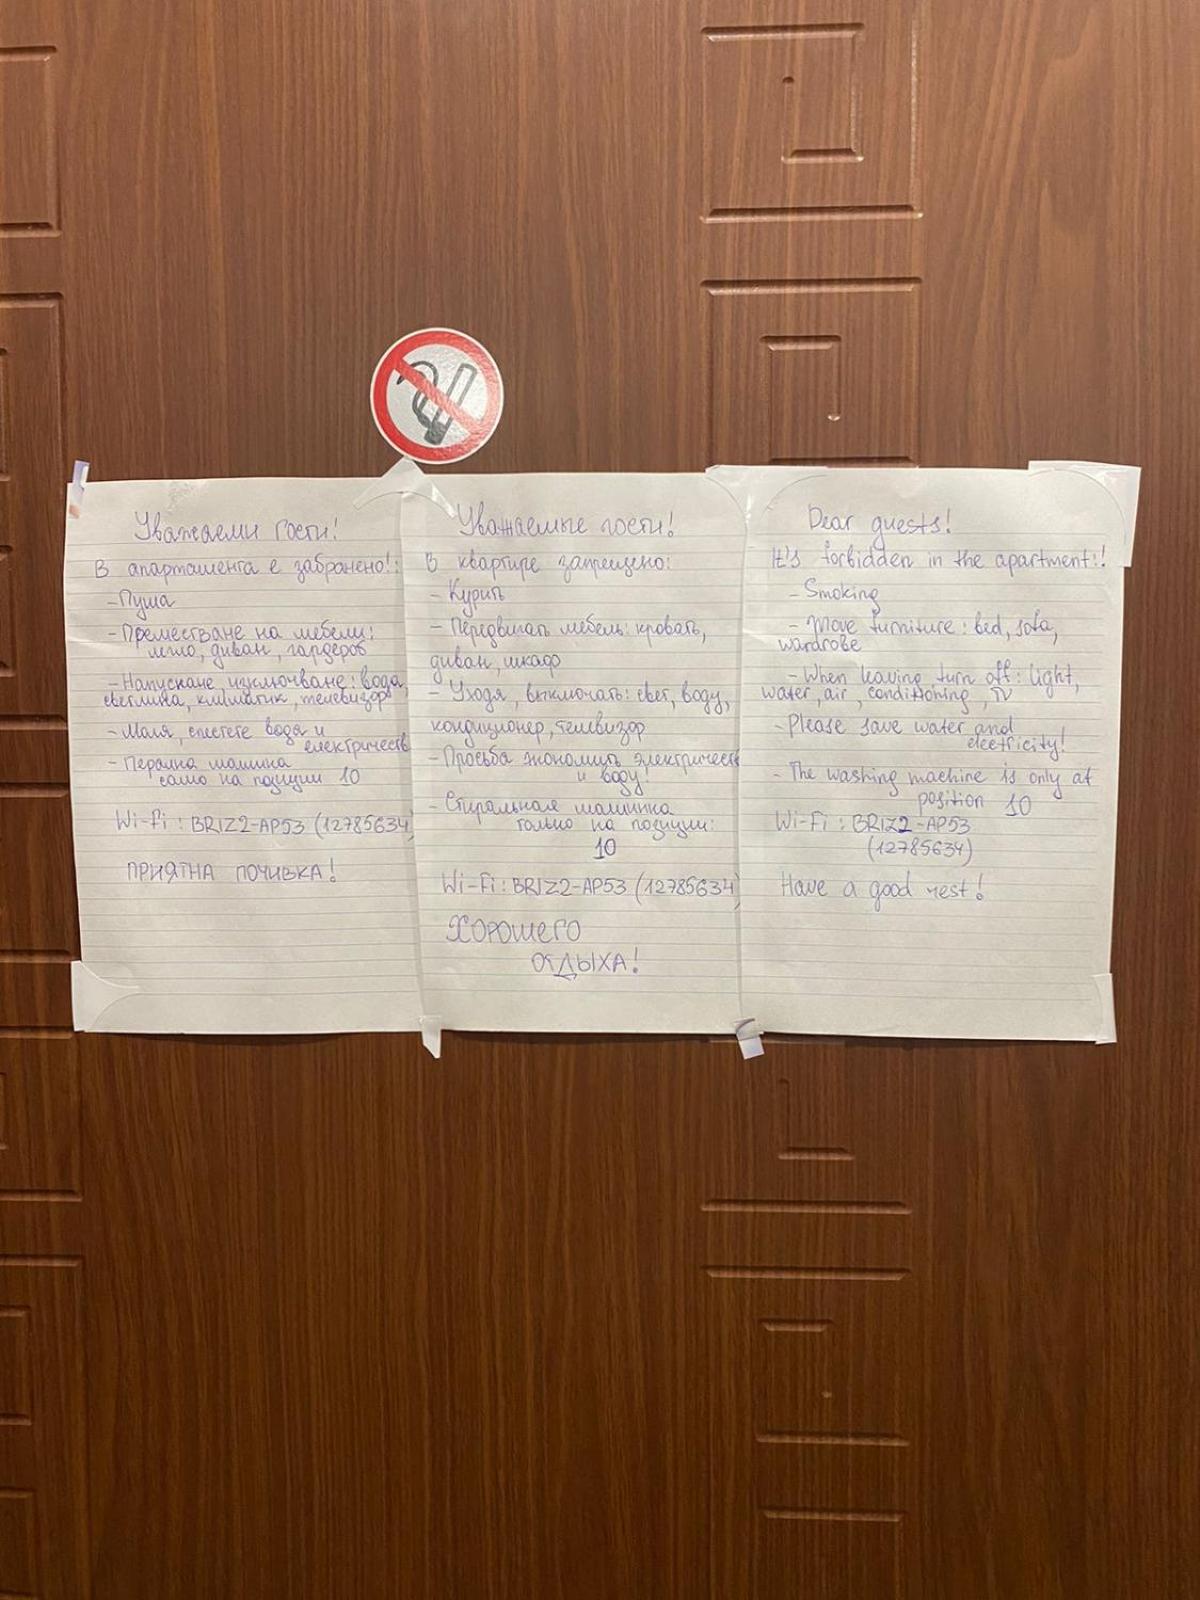 Уважаеми гости!
В апартамента е забранено!:
- Пуша
- Преместване на мебели:
легло, диван, гардероб
- Напускане, изключване: вода,
светлина, климатик, телевизор
- Моля, спестете вода и
електричеств
- Перална машина
само на позиции 10
Wi-Fi: BRIZ2-AP53 (12785634
ПРИЯТНА ПОЧИВКА!
Уважаемые гости!
В квартире запрещено:
- Курить
- Передвигать мебель: кровать,
диван, шкаф
- Уходя, выключать: свет, воду,
кондиционер, телевизор
- Просьба экономить электричеств
и воду!
- Стиральная машинка
только на позиции:
10
Wi-Fi: BRIZ2-AP53 (12785634
ХОРОШЕГО
ОТДЫХА!
Dear guests!
It's forbidden in the apartment:!
- Smoking
- Move furniture: bed, sofa,
wardrobe
- When leaving turn off: light,
water, air, conditioning, TV
- Please save water and
electricity!
- The washing machine is only at
position 10
Wi-Fi: BRIZ2-AP53
(12785634)
Have a good rest!